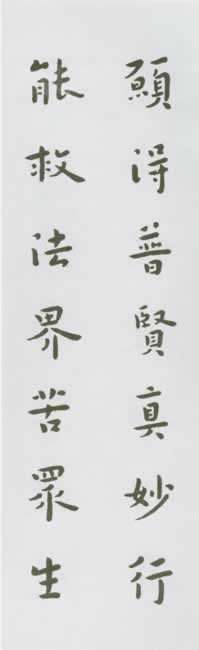 願得普賢真妙行
能救法界苦眾生